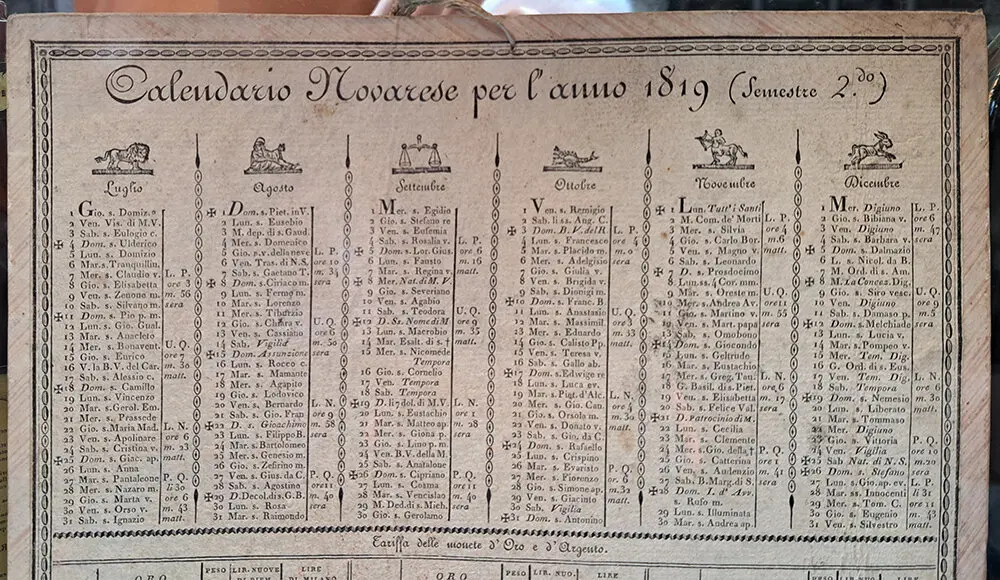 Calendario Novarese per l'anno 1819 (Semestre 2.do)
Luglio
1 Gio. s. Domiz.
2 Ven. Vis. di M.V.
3 Sab. s. Eulogio c.
✠ 4 Dom. s. Ulderico
5 Lun. s. Domizio
6 Mar. s. Tranquilin.
7 Mer. s. Claudio v. L. P.
8 Gio. s. Elisabetta ore 3
9 Ven. s. Zenone m. m. 56
10 Sab. s. Silvano m. sera
✠ 11 Dom. s. Pio p. m.
12 Lun. s. Gio. Gual.
13 Mar. s. Anacleto
14 Mer. s. Bonavent. U. Q.
15 Gio. s. Eurico ore 7
16 V. la B.V. del Car. m. 30
17 Sab. s. Alessio c. matt.
✠ 18 Dom. s. Camillo
19 Lun. s. Vincenzo
20 Mar. s. Gerol. Em.
21 Mer. s. Prassede
22 Gio. s. Maria Mad. L. N.
23 Ven. s. Apolinare ore 6
24 Sab. s. Cristina v. m. 23
✠ 25 Dom. s. Giac. ap. matt.
26 Lun. s. Anna
27 Mar. s. Pantaleone P. Q.
28 Mer. s. Nazaro m. li 30
29 Gio. s. Marta v. ore 6
30 Ven. s. Orso v. m. 43
31 Sab. s. Ignazio matt.
Agosto
✠ 1 Dom. s. Piet. in V.
2 Lun. s. Eusebio
3 M. dep. di s. Gaud.
4 Mer. s. Domenico
5 Gio. s. p. v. della neve L. P.
6 Ven. Tras. di N.S. ore 10
7 Sab. s. Gaetano T. m. 34
✠ 8 Dom. s. Ciriaco m. sera
9 Lun. s. Fermo m.
10 Mar. s. Lorenzo
11 Mer. s. Tiburzio
12 Gio. s. Chiara v. U. Q.
13 Ven. s. Cassiano ore 6
14 Sab. Vigilia m. 30
✠ 15 Dom. Assunzione sera
16 Lun. s. Rocco c.
17 Mar. s. Mamante
18 Mer. s. Agapito
19 Gio. s. Lodovico
20 Ven. s. Bernardo L. N.
21 Sab. s. Gio. Fran. ore 9
✠ 22 D. s. Gioachimo m. 58
23 Lun. s. Filippo B. sera
24 Mar. s. Bartolomeo
25 Mer. s. Genesio m.
26 Gio. s. Zefirino m.
27 Ven. s. Gius. da C. P. Q.
28 Sab. s. Agostino ore 11
✠ 29 D. Decol. di s. G.B. m. 40
30 Lun. s. Rosa sera
31 Mar. s. Raimondo
Settembre
1 Mer. s. Egidio
2 Gio. s. Stefano re
3 Ven. s. Eufemia
4 Sab. s. Rosalia v. L. P.
✠ 5 Dom. s. Lor. Gius. ore 6
6 Lun. s. Fausto m. 16
7 Mar. s. Regina v. matt.
✠ 8 Mer. Nat. di M. V.
9 Gio. s. Severiano
10 Ven. s. Agabio
11 Sab. s. Teodora U. Q.
✠ 12 D. Ss. Nome di M ore 9
13 Lun. s. Macrobio m. 35
14 Mar. Esalt. di s. † matt.
15 Mer. s. Nicomede
Tempora
16 Gio. s. Cornelio
17 Ven. Tempora
18 Sab. Tempora
✠ 19 D. li 7 dol. di M.V. L. N.
20 Lun. s. Eustachio ore 1
21 Mar. s. Matteo ap. m. 28
22 Mer. s. Giona p. sera
23 Gio. s. Lino p. m.
24 Ven. B.V. della M.
25 Sab. s. Anatalone
✠ 26 Dom. s. Cipriano P. Q.
27 Lun. s. Cosma ore 1
28 Mar. s. Vencislao m. 40
29 M. Ded. di s. Mich. sera
30 Gio. s. Gerolamo
Ottobre
1 Ven. s. Remigio
2 Sab. li ss. Ang. C.
✠ 3 Dom. B. V. del R. L. P.
4 Lun. s. Francesco ore 4
5 Mar. s. Placido m. m. 0
6 Mer. s. Adelgisio sera
7 Gio. s. Giulia v.
8 Ven. s. Brigida v.
9 Sab. s. Dionigi m.
✠ 10 Dom. s. Franc. B.
11 Lun. s. Anastasio U. Q.
12 Mar. s. Massimil. ore 3
13 Mer. s. Eduardo m. 33
14 Gio. s. Calisto Pp. matt.
15 Ven. s. Teresa v.
16 Sab. s. Gallo ab.
✠ 17 Dom. s. Edwige re
18 Lun. s. Luca ev.
19 Mar. s. Piet. d'Alc. L. N.
20 Mer. s. Gio. Can. ore 4
21 Gio. s. Orsola m. m. 30
22 Ven. s. Donato v. matt.
23 Sab. s. Gio. da C.
✠ 24 Dom. s. Rafaello
25 Lun. s. Crispino
26 Mar. s. Evaristo P. Q.
27 Mer. s. Fiorenzo
28 Gio. s. Simone ap. m. 32
29 Ven. s. Giacinto matt.
30 Sab. Vigilia
✠ 31 Dom. s. Antonino
Novembre
✠ 1 Lun. Tutt' i Santi
2 M. Com. de' Morti L. P.
3 Mer. s. Silvia ore 4
4 Gio. s. Carlo Bor. m. 6
5 Ven. s. Magno matt.
6 Sab. s. Leonardo
✠ 7 D. s. Prosdocimo
8 Lun. ss. 4 Cor. mm.
9 Mar. s. Oreste m. U. Q.
10 Mer. s. Andrea Av. ore 11
11 Gio. s. Martino v. m. 55
12 Ven. s. Mart. papa sera
13 Sab. s. Omobono
✠ 14 Dom. s. Giocondo
15 Lun. s. Geltrude
16 Mar. s. Eustachio
17 Mer. s. Greg. Tau. L. N.
18 G. Basil. di s. Piet. ore 6
19 Ven. s. Elisabetta m. 17
20 Sab. s. Felice Val. sera
✠ 21 D. Patrocinio di M.
22 Lun. s. Cecilia
23 Mar. s. Clemente
24 Mer. s. Gio. della † P. Q.
25 Gio. s. Catterina ore 1
26 Ven. s. Audenzio m. 41
27 Sab. B. Marg. di S. matt.
✠ 28 Dom. I. d' Avv.
s. Rufo m.
29 Lun. s. Illuminata
30 Mar. s. Andrea ap.
Dicembre
1 Mer. Digiuno L. P.
2 Gio. s. Bibiana v. ore 6
3 Ven. Digiuno m. 47
4 Sab. s. Barbara v. sera
✠ 5 Dom. s. Dalmazio
6 L. s. Nicol. da B.
7 M. Ord. di s. Am.
✠ 8 M. La Concez. Dig. U. Q.
9 Gio. s. Siro vesc. ore 9
10 Ven. Digiuno
11 Sab. s. Damaso p. m. 5
✠ 12 Dom. s. Melchiade sera
13 Lun. s. Lucia v.
14 Mar. s. Pompeo v.
15 Mer. Tem. Dig.
16 G. Ord. di s. Eus.
17 Ven. Tem. Dig. L. N.
18 Sab. Tempora ore 6
✠ 19 Dom. s. Nemesio m. 30
20 Lun. s. Liberato matt.
21 Mar. s. Tommaso
22 Mer. Digiuno
23 Gio. s. Vittoria P. Q.
24 Ven. Vigilia ore 10
✠ 25 Sab. Nat. di N. S. m. 20
✠ 26 Dom. s. Stefano sera
27 Lun. s. Gio. ap. ev. L. P.
28 Mar. ss. Innocenti li 31
29 Mer. s. Tom. C. ore 11
30 Gio. s. Eugenio m. 43
31 Ven. s. Silvestro matt.
Tariffa delle monete d' Oro e d' Argento.
ORO PESO LIR. NUOVE LIRE ORO PESO LIR. NUO. LIRE
DI PIEM. DI MILANO